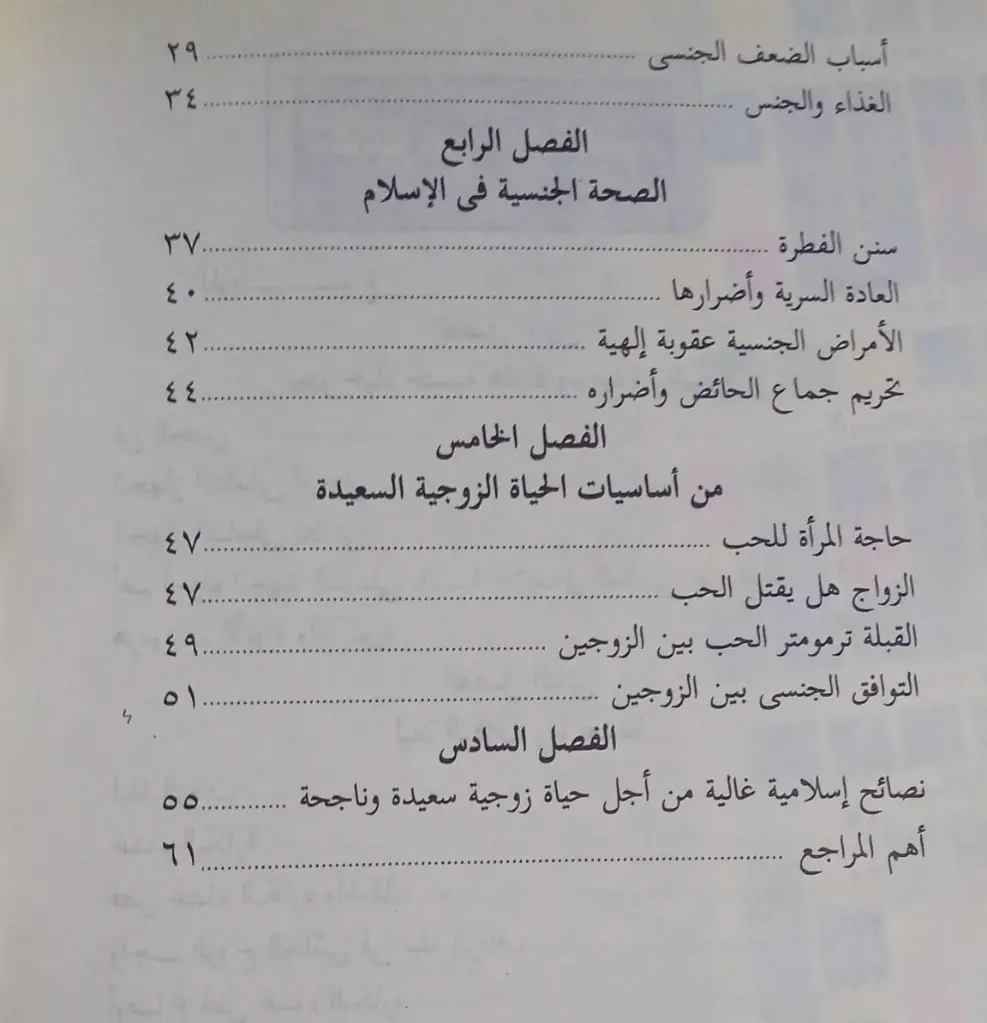 أسباب الضعف الجنسى ........ ٢٩
الغذاء والجنس ........ ٣٤
الفصل الرابع
الصحة الجنسية فى الإسلام
سنن الفطرة ........ ٣٧
العادة السرية وأضرارها ........ ٤٠
الأمراض الجنسية عقوبة إلهية ........ ٤٢
تحريم جماع الحائض وأضراره ........ ٤٤
الفصل الخامس
من أساسيات الحياة الزوجية السعيدة
حاجة المرأة للحب ........ ٤٧
الزواج هل يقتل الحب ........ ٤٧
القبلة ترمومتر الحب بين الزوجين ........ ٤٩
التوافق الجنسى بين الزوجين ........ ٥١
الفصل السادس
نصائح إسلامية غالية من أجل حياة زوجية سعيدة وناجحة ........ ٥٥
أهم المراجع ........ ٦١